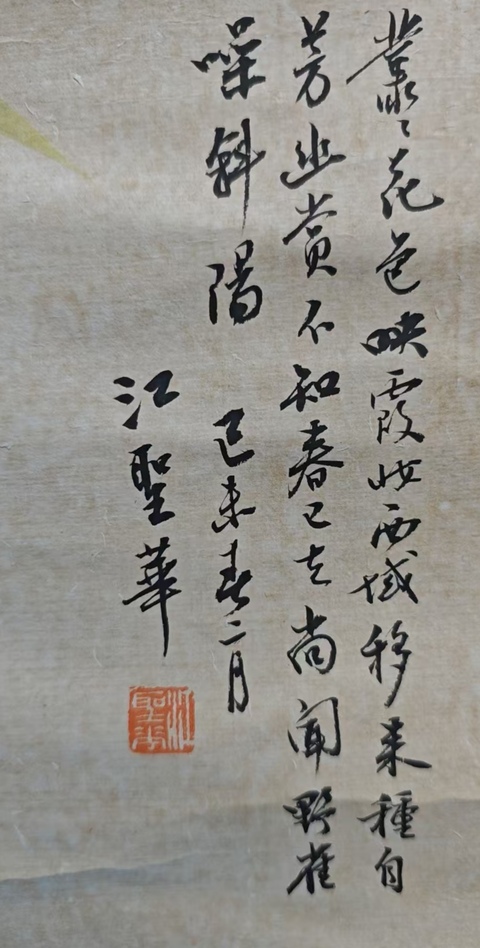 叢〻花色映霞妝西域移来種自
芳幽賞不知春已去尚聞野雀
噪斜陽
己未春二月
江聖華
江聖華